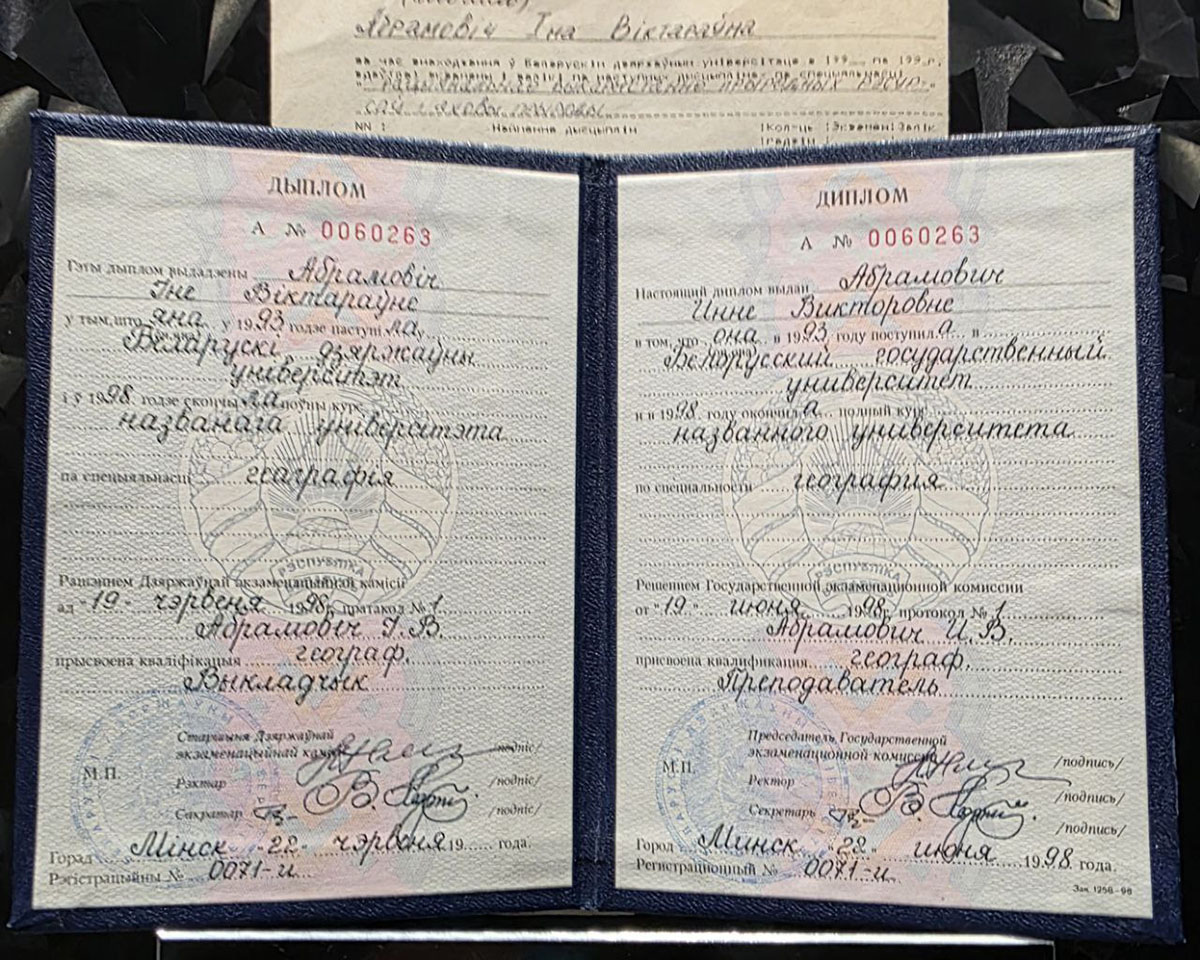 Абрамовіч Іна Віктараўна
за час знаходжання ў Беларускім дзяржаўным універсітэце з 199 па 199 г.
саў і аховы прыроды
NN Найменне дысцыплін Колц-ць Экзамен Залік
ДЫПЛОМ
А № 0060263
Гэты дыплом выдадзены Абрамовіч
Іне Віктараўне
у тым, што яна у 1993 годзе паступі ла у
Беларускі дзяржаўны
універсітэт
і ў 1998 годзе скончы ла поўны курс
названага універсітэта
па спецыяльнасці географія
РЭСПУБЛІКА
Рашэннем Дзяржаўнай экзаменацыйнай камісіі
ад "19" чэрвеня 1998 г. пратакол № 1
Абрамовіч І. В.
прысвоена кваліфікацыя географ.
Выкладчык
Старшыня Дзяржаўнай
экзаменацыйнай камісіі /подпіс/
М.П.
Рэктар /подпіс/
Сакратар /подпіс/
Горад Мінск "22" чэрвеня 19 года.
Рэгістрацыйны № 0071-и
ДИПЛОМ
А № 0060263
Настоящий диплом выдан Абрамович
Инне Викторовне
в том, что она в 1993 году поступил а в
Белорусский государственный
университет
и в 1998 году окончил а полный курс
названного университета
по специальности география
РЭСПУБЛІКА
Решением Государственной экзаменационной комиссии
от "19" июня 1998 г. протокол № 1
Абрамович И. В.
присвоена квалификация географ.
Преподаватель
Председатель Государственной
экзаменационной комиссии /подпись/
М.П.
Ректор /подпись/
Секретарь /подпись/
Город Минск "22" июня 1998 года.
Регистрационный № 0071-и
Зак. 1256-96